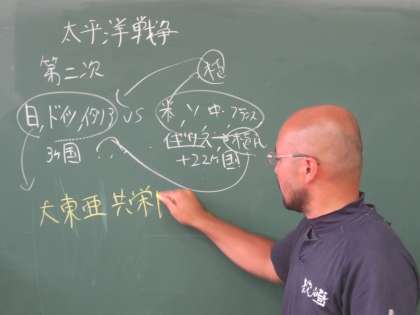 太平洋戦争
第二次
日,ドイツ,イタリア VS 米,ソ,中,フランス
イギリス
3ヶ国
+22ヶ国
大東亜共栄